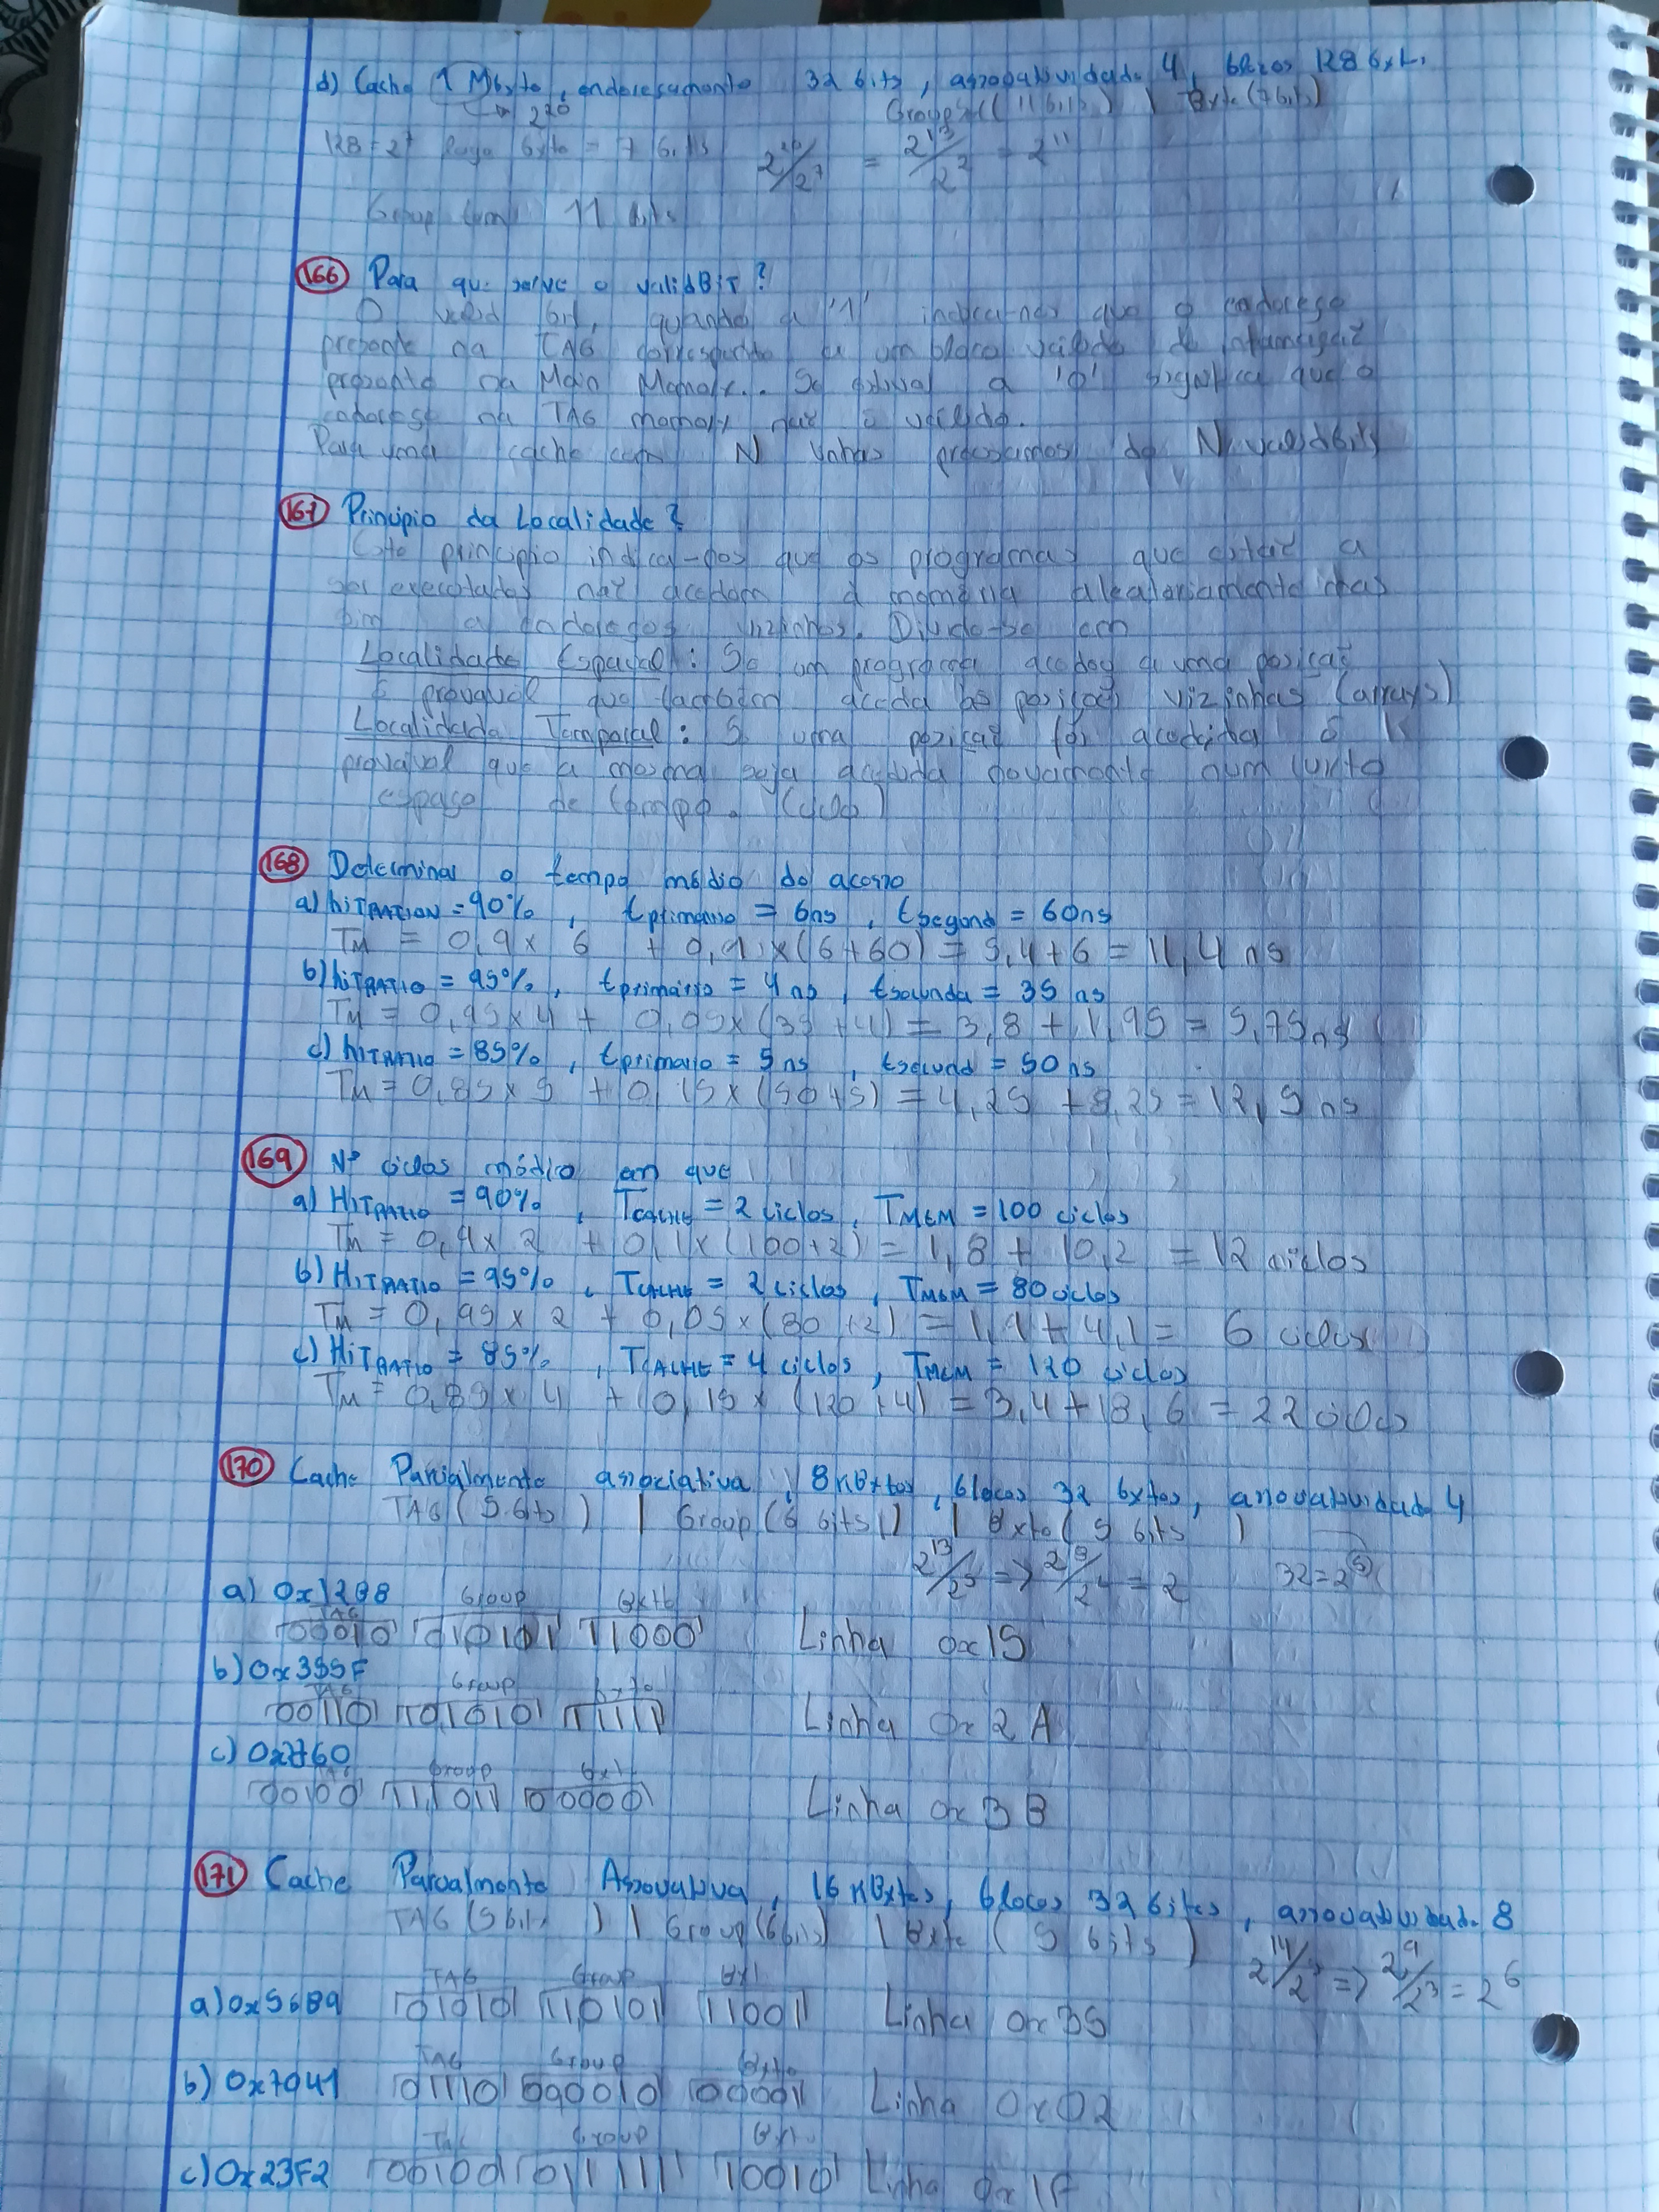 d) Cache 1 Mbyte, endereçamento 32 bits, associatividade 4, blocos 128 byt.
→ 2^20 Group ( 11 bits ) | Byte (7 bits)
128 = 2^7 Byte = 7 bits 2^20/2^7 = 2^13/2^2 = 2^11
Group 11 bits
166 Para que serve o validBiT?
O valid bit, quando a '1' indica-nos que o endereço
presente na TAG corresponde a um bloco válido de informação
presente na Main Memory. Se estiver a '0' significa que o
endereço na TAG memory não é válido.
Para uma cache com N linhas precisamos de N validbits
167 Principio da Localidade?
Este principio indica-nos que os programas que estão a
ser executados não acedem à memória aleatoriamente mas
sim a endereços vizinhos. Divide-se em
Localidade Espacial: Se um programa acedeu a uma posição
é provavel que também aceda às posições vizinhas (arrays)
Localidade Temporal: Se uma posição for acedida é
provável que a mesma seja acedida novamente num curto
espaço de tempo. (ciclo)
168 Determinar o tempo médio de acesso
a) hiTRATION = 90%, tprimário = 6ns, tsegund = 60ns
TM = 0,9 x 6 + 0,1 x (6+60) = 5,4 + 6 = 11,4 ns
b) hiTRATIO = 95%, tprimário = 4 ns, tsecunda = 35 ns
TM = 0,95 x 4 + 0,05 x (35+4) = 3,8 + 1,95 = 5,75 ns
c) hiTRATIO = 85%, tprimario = 5 ns, tsecund = 50 ns
TM = 0,85 x 5 + 0,15 x (50+5) = 4,25 + 8,25 = 12,5 ns
169 Nº ciclos médio em que
a) HiTRATIO = 90%, TCACHE = 2 ciclos, TMEM = 100 ciclos
TM = 0,9 x 2 + 0,1 x (100+2) = 1,8 + 10,2 = 12 ciclos
b) HiTRATIO = 95%, TCACHE = 2 ciclos, TMEM = 80 ciclos
TM = 0,95 x 2 + 0,05 x (80+2) = 1,9 + 4,1 = 6 ciclos
c) HiTRATIO = 85%, TCACHE = 4 ciclos, TMEM = 120 ciclos
TM = 0,85 x 4 + 0,15 x (120+4) = 3,4 + 18,6 = 22 ciclos
170 Cache Parcialmente associativa, 8 KBytes, blocos 32 bytes, associatividade 4
TAG (5 bits) | Group (6 bits) | Byte (5 bits)
2^13/2^5 => 2^8/2^4 = 2 32 = 2^5
a) 0x12B8 Group Byte
TAG
00010 010101 11000 Linha 0x15
b) 0x355F Group Byte
TAG
00110 101010 11111 Linha 0x2A
c) 0x2760 Group Byt
TAG
00100 111011 00000 Linha 0x3B
171 Cache Parcialmente Associativa, 16 KBytes, blocos 32 bites, associatividad. 8
TAG (5 bits) | Group (6 bits) | Byte (5 bits) 2^14/2^5 => 2^9/2^3 = 2^6
TAG Group Byt
a) 0x56B9 01010 110101 11001 Linha 0x35
TAG Group Byte
b) 0x7041 01110 000010 00001 Linha 0x02
TAG Group Byt
c) 0x23F2 00100 011111 10010 Linha 0x1F